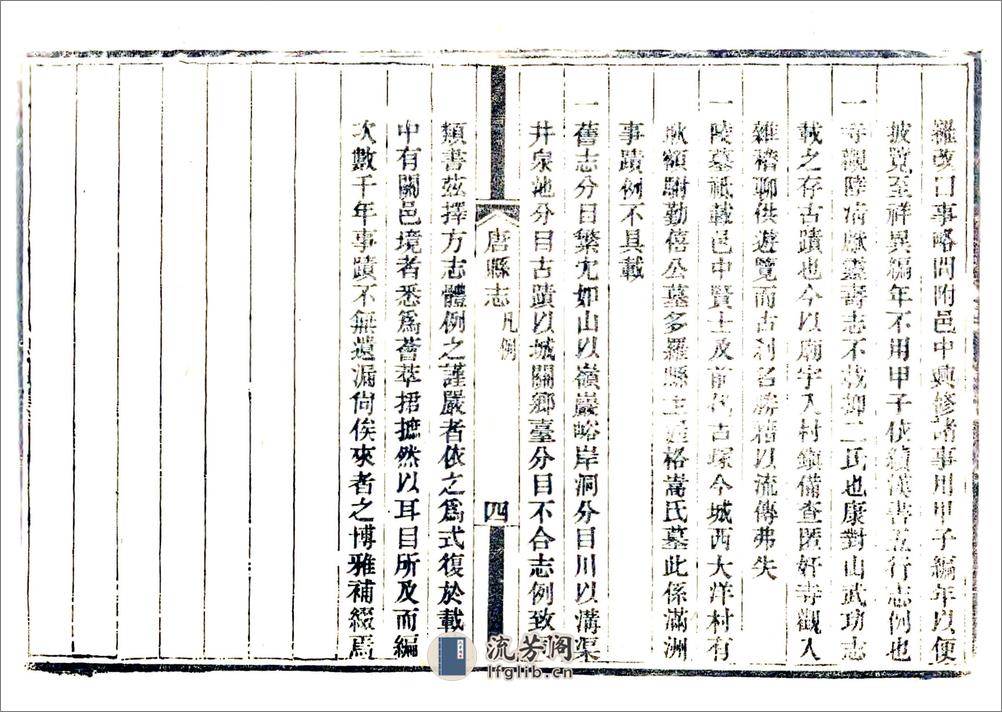 羅夢曰事略間附邑中興修諸事用甲子編年以便
披覽至祥異編年不用甲子依續漢書五行志例也
一寺觀陸清獻靈壽志不載抑二氏也康對山武功志
載之存古蹟也今以廟宇入村鎮備查匿奸寺觀入
雜稽聊供遊覽而古刹名勝藉以流傳弗失
一陵墓祗載邑中賢士及前代古塚今城西大洋村有
耿額駙勤僖公墓多羅縣主格嵩氏墓此係滿洲
事蹟例不具載
一舊志分目繁冗如山以嶺巖峪岸洞分目川以溝渠
井泉池分目古蹟以城關鄉臺分目不合志例致
唐縣志
凡例
四
類書茲擇方志體例之謹嚴者依之爲式復於載
中有關邑境者悉爲薈萃捃摭然以耳目所及而編
次數千年事蹟不無遺漏尙俟來者之博雅補綴焉
流芳阁
lfglib.cn